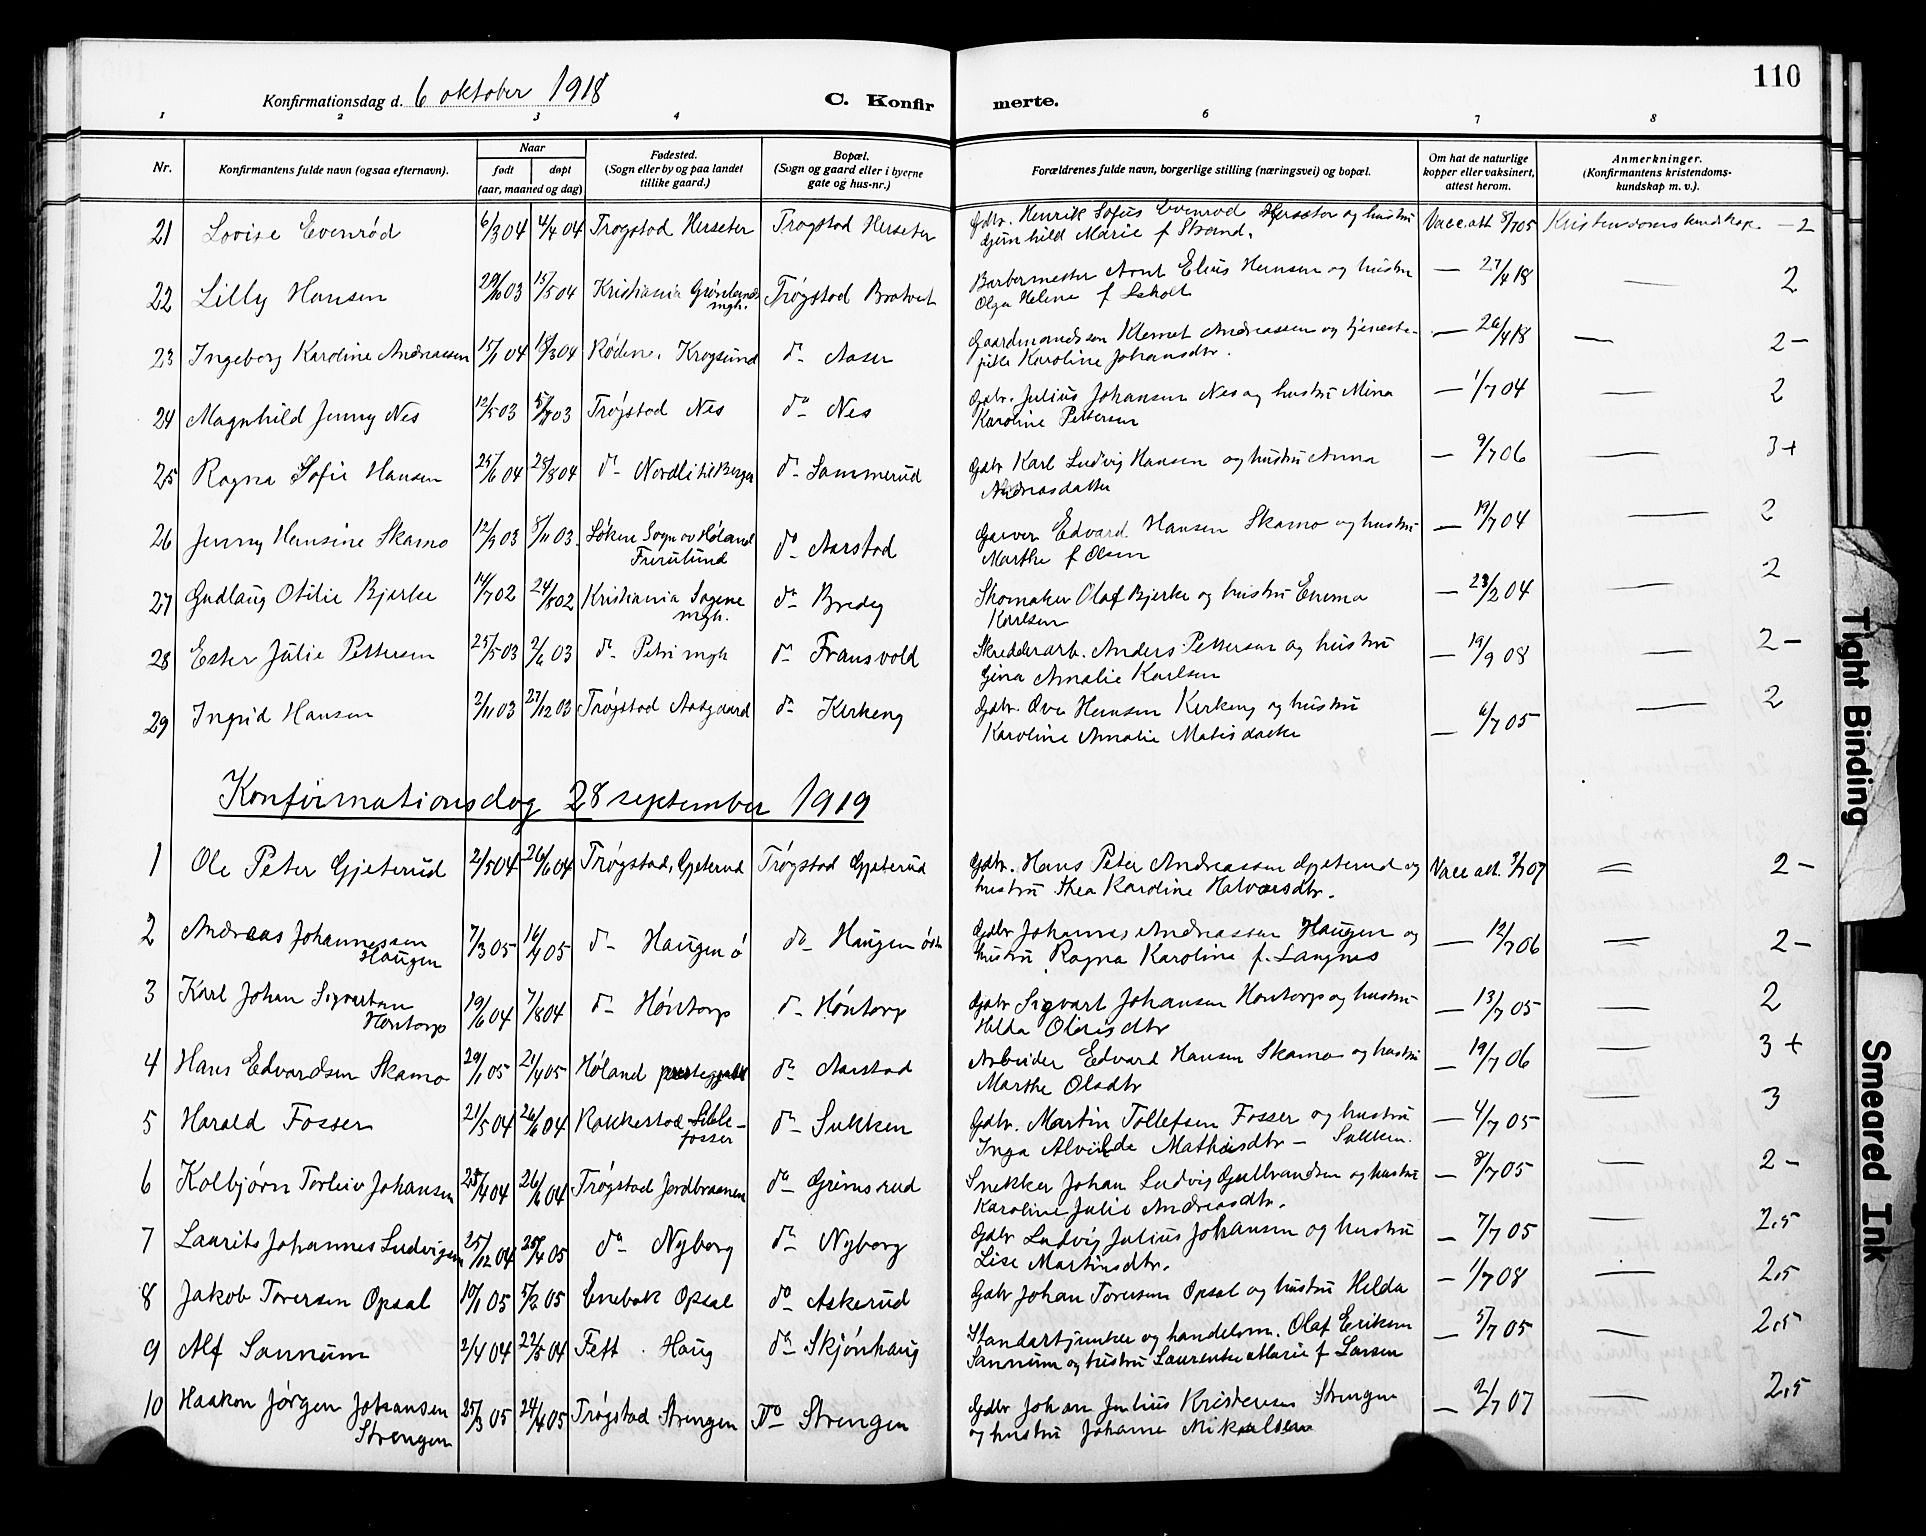 110
Konfirmationsdag d. 6 oktober 1918
C. Konfirmerte.
1 2 3 4 5 6 7 8
Nr.
Konfirmantens fulde navn (ogsaa efternavn).
Naar
født
døpt
(aar, maaned og dag)
Fødested.
(Sogn eller by og paa landet
tillike gaard.)
Bopæl.
(Sogn og gaard eller i byerne
gate og hus-nr.)
Forældrenes fulde navn, borgerlige stilling (næringsvei) og bopæl.
Om hat de naturlige
kopper eller vaksinert,
attest herom.
Anmerkninger.
(Konfirmantens kristendoms-
kundskap m. v.)
21 Lovise Evenrød 6/3 04 4/4 04 Trøgstad Herseter Trøgstad Herseter Gdbr. Henrik Sofus Evenrød Herseter og hustru Vacc. att 8/7 05 Kristendomskundskap. - 2
Gunhild Marie f Strand.
22 Lilly Hansen 15/5 04 Kristiania Grønlands Trøgstad Bratvet Barbermester Arnt Elius Hansen og hustru — 27/4 18 — 2
mgh. Olga Helene f
23 Ingeborg Karoline Andreassen 15/1 04 13/3 04 Rødenes Krogsund do Aaser Gaardmandssøn Klemet Andreassen og tjeneste- — 26/4 18 — 2-
pike Karoline Johansdtr.
24 Magnhild Jenny Nes 12/5 03 5/7 03 Trøgstad Nes do Nes Gdbr. Julius Johansen Nes og hustru Mina — 1/7 04 — 2
Karoline Pettersen
25 Ragna Sofie Hansen 25/6 04 28/8 04 do Nordli til Berger do Sammerud Gdbr Karl Ludvig Hansen og hustru Anna — 9/7 06 — 3+
Andreasdatter
26 Jenny Hansine Skamo 12/9 03 8/11 03. Løken Sogn av Høland do Aarstad Garver Edvard Hansen Skamo og hustru — 19/7 04 — 2
Marthe f Olsen
27 Gudlaug Otilie Bjerke 14/7 02 24/8 02 Kristiania Sagene do Bredeg Skomaker Olaf Bjerke og hustru Emma — 23/2 04 — 2
mgh. Karlsen
28 Ester Julie Pettersen 25/5 03 2/6 03 do Petri mgh do Fransvold Skredderarb. Anders Pettersen og hustru — 19/9 08 — 2-
Gina Amalie Karlsen
29 Ingrid Hansen 2/11 03 27/12 03 Trøgstad Aasgaard do Kirkeng Gdbr. Ove Hansen Kirkeng og hustru — 6/7 05 — 2
Karoline Amalie Matisdatter
Konfirmationsdag 28 september 1919
1 Ole Peter Gjeterud 2/5 04 26/6 04 Trøgstad, Gjeterud Trøgstad Gjeterud Gdbr. Hans Peter Andreassen Gjeterud og Vacc att. 3/7 07 = 2-
hustru Thea Karoline Halvorsdtr.
2 Andreas Johannessen 7/3 05 16/4 05 do Haugen ø do Haugen øst Gdbr Johannes Andreassen Haugen og — 12/7 06 — 2-
Haugen hustru Ragna Karoline f. Langnes
3 Karl Johan Sigvartsen 19/6 04 7/8 04 do Høntorp do Høntorp Gdbr Sigvart Johansen Høntorp og hustru — 13/7 05 — 2
Høntorp Hilda Olavisdtr
4 Hans Edvardsen Skamo 29/1 05 21/4 05 Høland prestegjeld do Aarstad Arbeider Edvard Hansen Skamo og hustru — 19/7 06 — 3+
Marthe Olsdtr
5 Harald Fosser 21/5 04 26/6 04 Rakkestad Lille- do Sukken Gdbr. Martin Tollefsen Fosser og hustru — 4/7 05 — 3
fosser Inga Alvilde Mathisdtr — Sukken.
6 Kolbjørn Torleiv Johansen 25/4 04 26/6 04 Trøgstad Jordbraaneen do Grimsrud Snekker Johan Ludvig Gulbrandsen og hustru — 8/7 05 — 2-
Karoline Julie Andreasdtr.
7 Laurits Johannes Ludvigsen 25/12 04 do Nyborg do Nyborg Gdbr Ludvig Julius Johansen og hustru — 7/7 05 — 2,5
Lise Martinsdtr.
8 Jakob Toresen Opsal 10/1 05 5/2 05 Enebak Opsal do Askerud Gdbr Johan Toresen Opsal og hustru Hilda — 1/7 08 — 2,5
9 Alf Sannum 2/4 04 22/5 04 Fett. Haug do Skjønhaug Standartjunker og handelsm. Olaf Eriksen — 5/7 05 — 2,5
Sannum og hustru Laurentse Marie f Larsen
10 Haakon Jørgen Johansen 25/3 05 24/4 05 Trøgstad Strengen Do Strengen Gdbr Johan Julius Kristensen Strengen — 2/7 07 — 2,5
Strengen og hustru Johanne Mikaelsen
Tight Binding
Smeared Ink